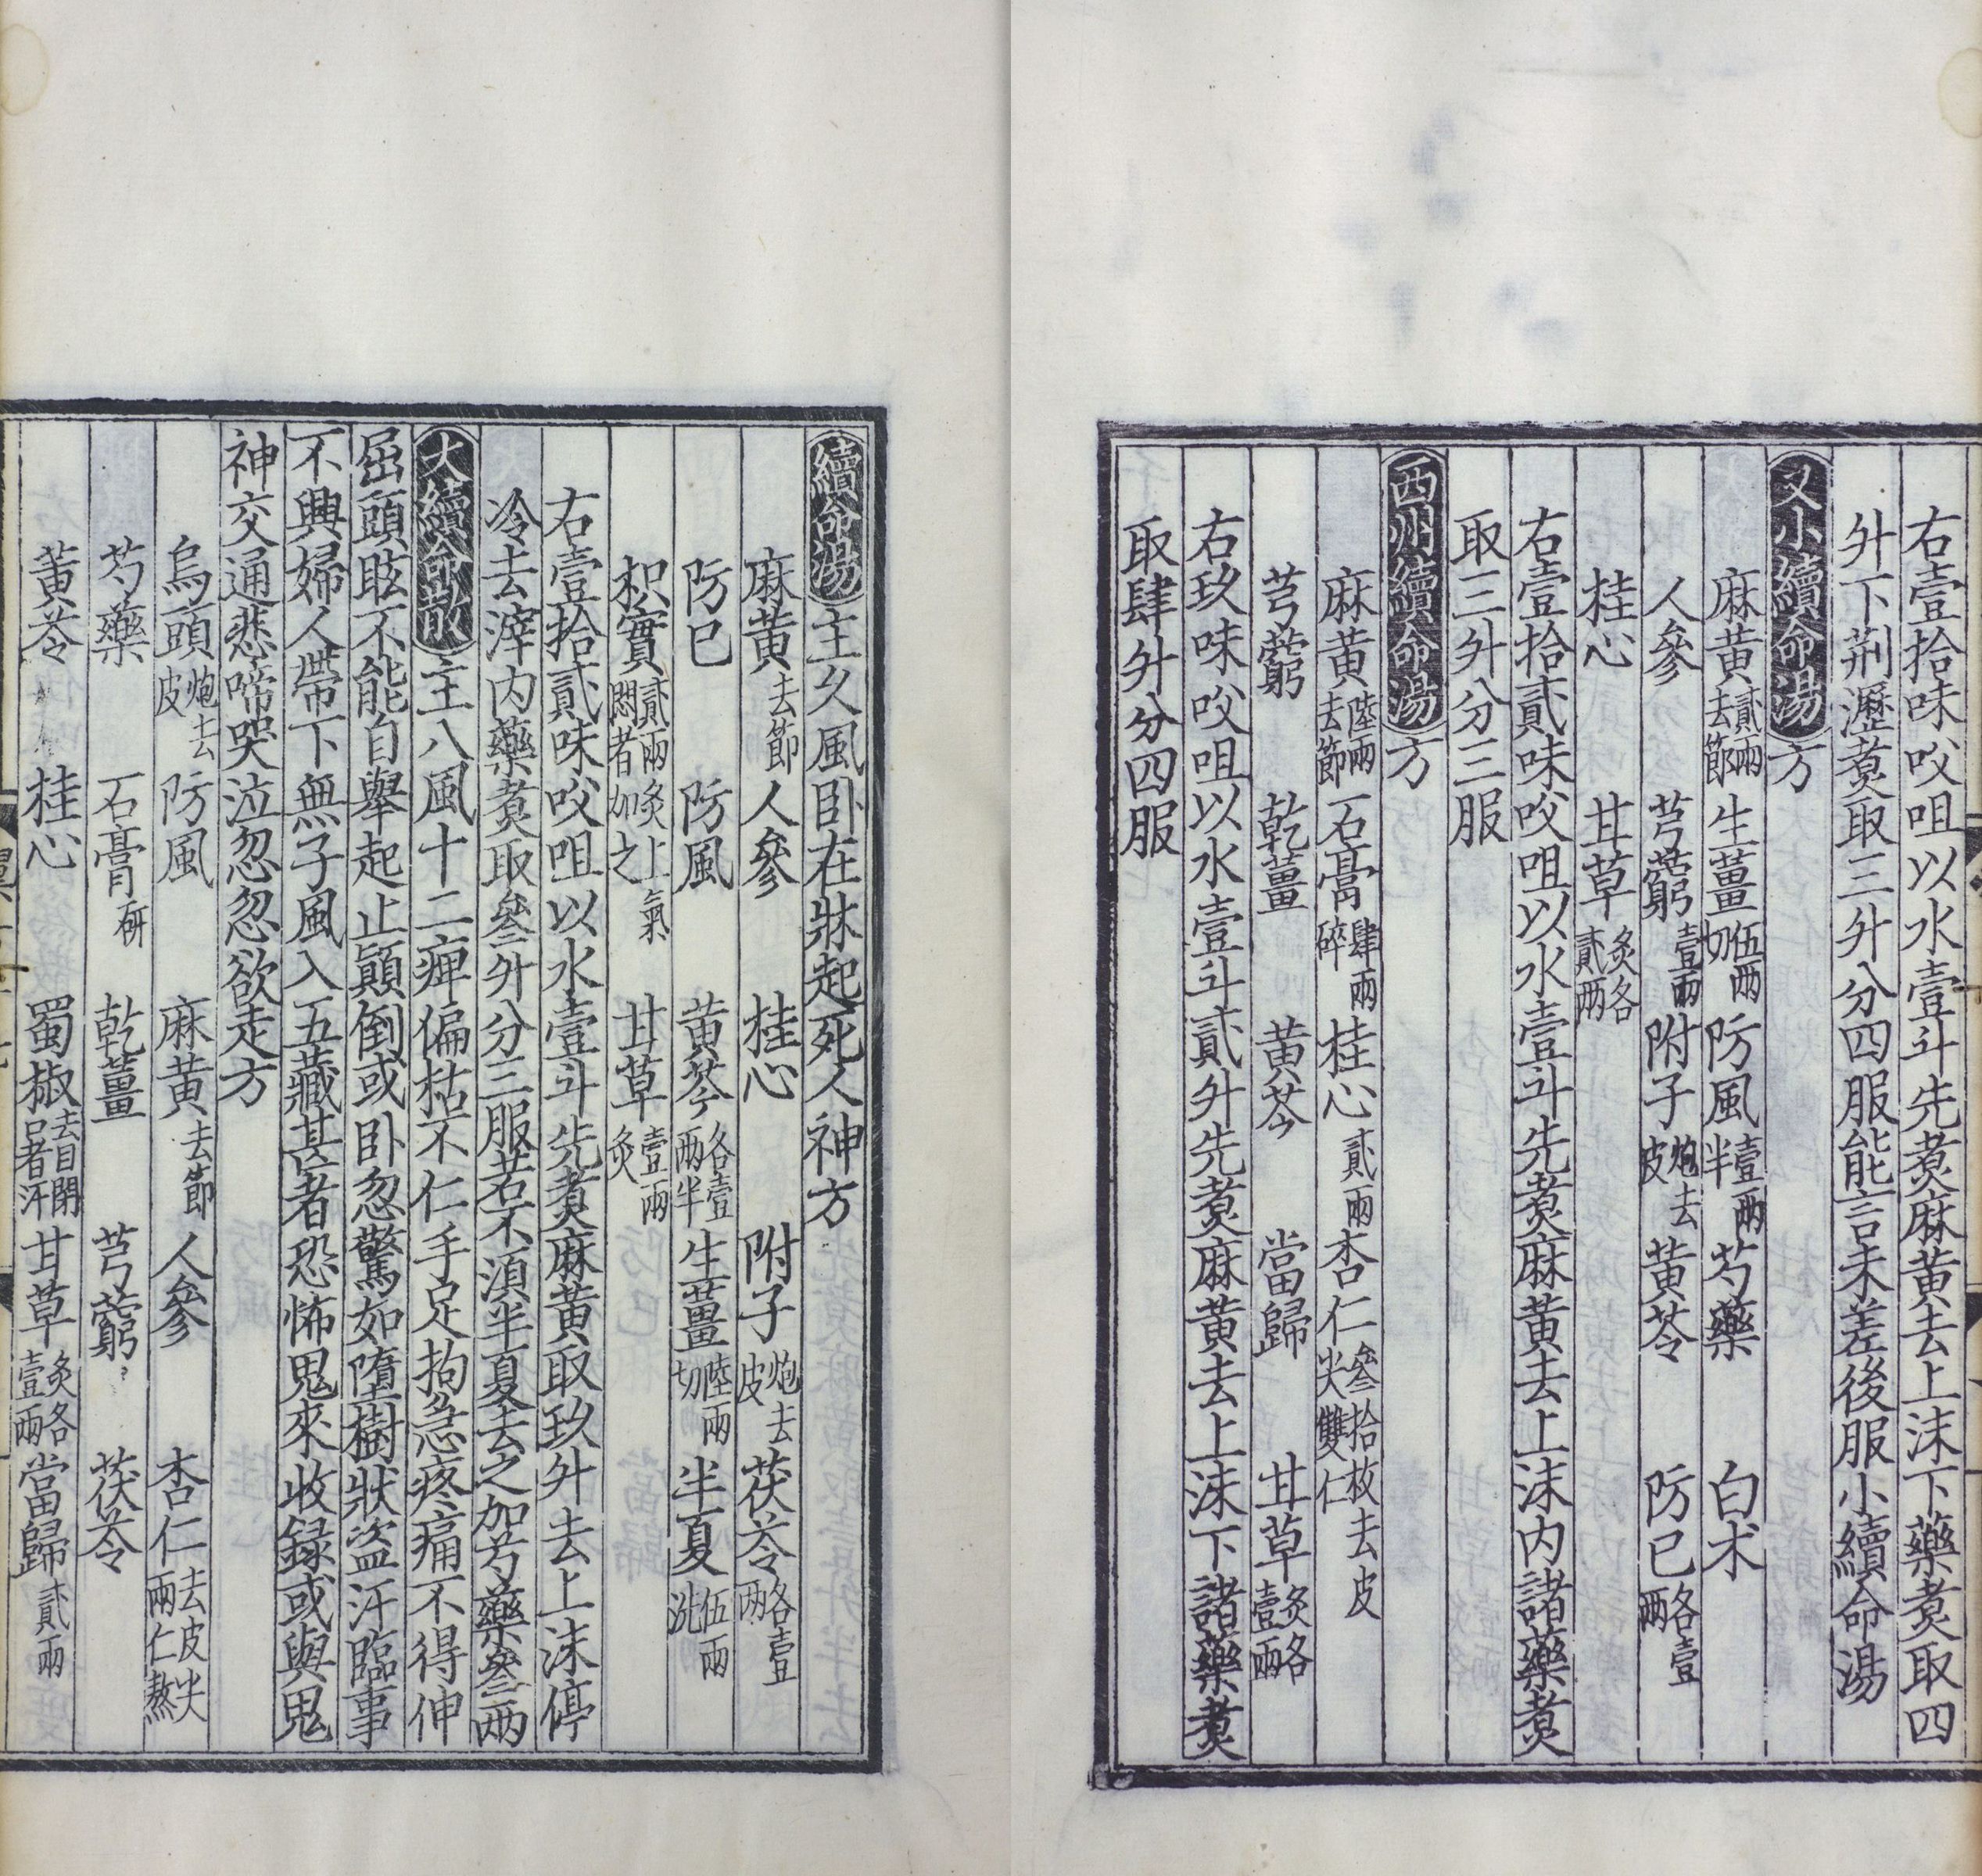 右壹拾味㕮咀以水壹斗先煑麻黄去上沫下藥煑取四
升下荆瀝煑取三升分四服能言未差後服小續命湯
又小續命湯方
麻黄貳兩去節 生薑伍兩切 防風壹兩半 芍藥 白朮
人參 芎藭壹兩 附子炮去皮 黄芩 防已各壹兩
桂心 甘草炙各貳兩
右壹拾貳味㕮咀以水壹斗先煑麻黄去上沫内諸藥煑
取三升分三服
西州續命湯方
麻黄陸兩去節 石膏肆兩碎 桂心貳兩 杏仁叁拾枚去皮尖雙仁
芎藭 乾薑 黄芩 當歸 甘草炙各壹兩
右玖味㕮咀以水壹斗貳升先煑麻黄去上沫下諸藥煑
取肆升分四服
續命湯主久風卧在牀起死人神方
麻黄去節 人參 桂心 附子炮去皮 茯苓各壹兩
防已 防風 黄芩各壹兩半 生薑陸兩切 半夏伍兩洗
枳實貳兩炙上氣悶者加之 甘草壹兩炙
右壹拾貳味㕮咀以水壹斗先煑麻黄取玖升去上沫停
冷去滓内藥煑取叁升分三服若不湏半夏去之加芍藥叁兩
大續命散主八風十二痹偏枯不仁手足拘急疼痛不得伸
屈頭眩不能自舉起止顛倒或卧忽驚如墮樹狀盗汗臨事
不興婦人帶下無子風入五藏甚者恐怖鬼來收録或與鬼
神交通悲啼哭泣忽忽欲走方
烏頭炮去皮 防風 麻黄去節 人參 杏仁去皮尖兩仁熬
芍藥 石膏研 乾薑 芎藭 茯苓
黄芩 桂心 蜀椒去目閉口者汗 甘草炙各壹兩 當歸貳兩